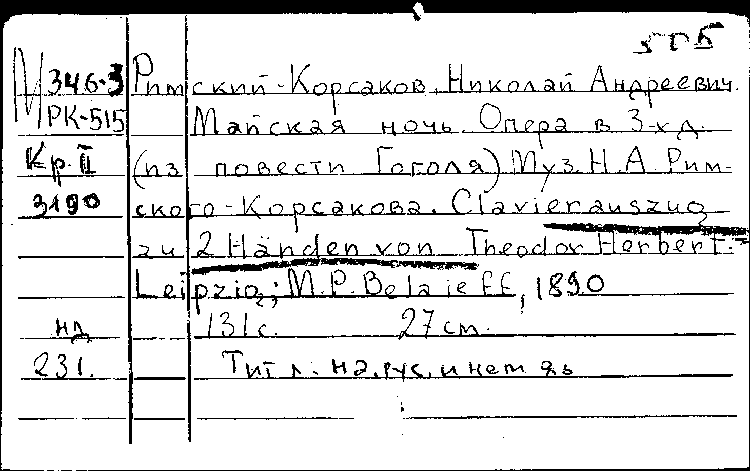 М 346-3 Римский-Корсаков, Николай Андреевич.
РК-515 Майская ночь. Опера в 3-х д.
Кр. II (из повести Гоголя) Муз. Н. А. Рим-
3190 ского-Корсакова. Clavierauszug
zu 2 Händen von Theodor Herbert.
Leipzig; M. P. Belaieff, 1890
нд 131 с. 27 см.
231. Тит л. на рус. и нем яз